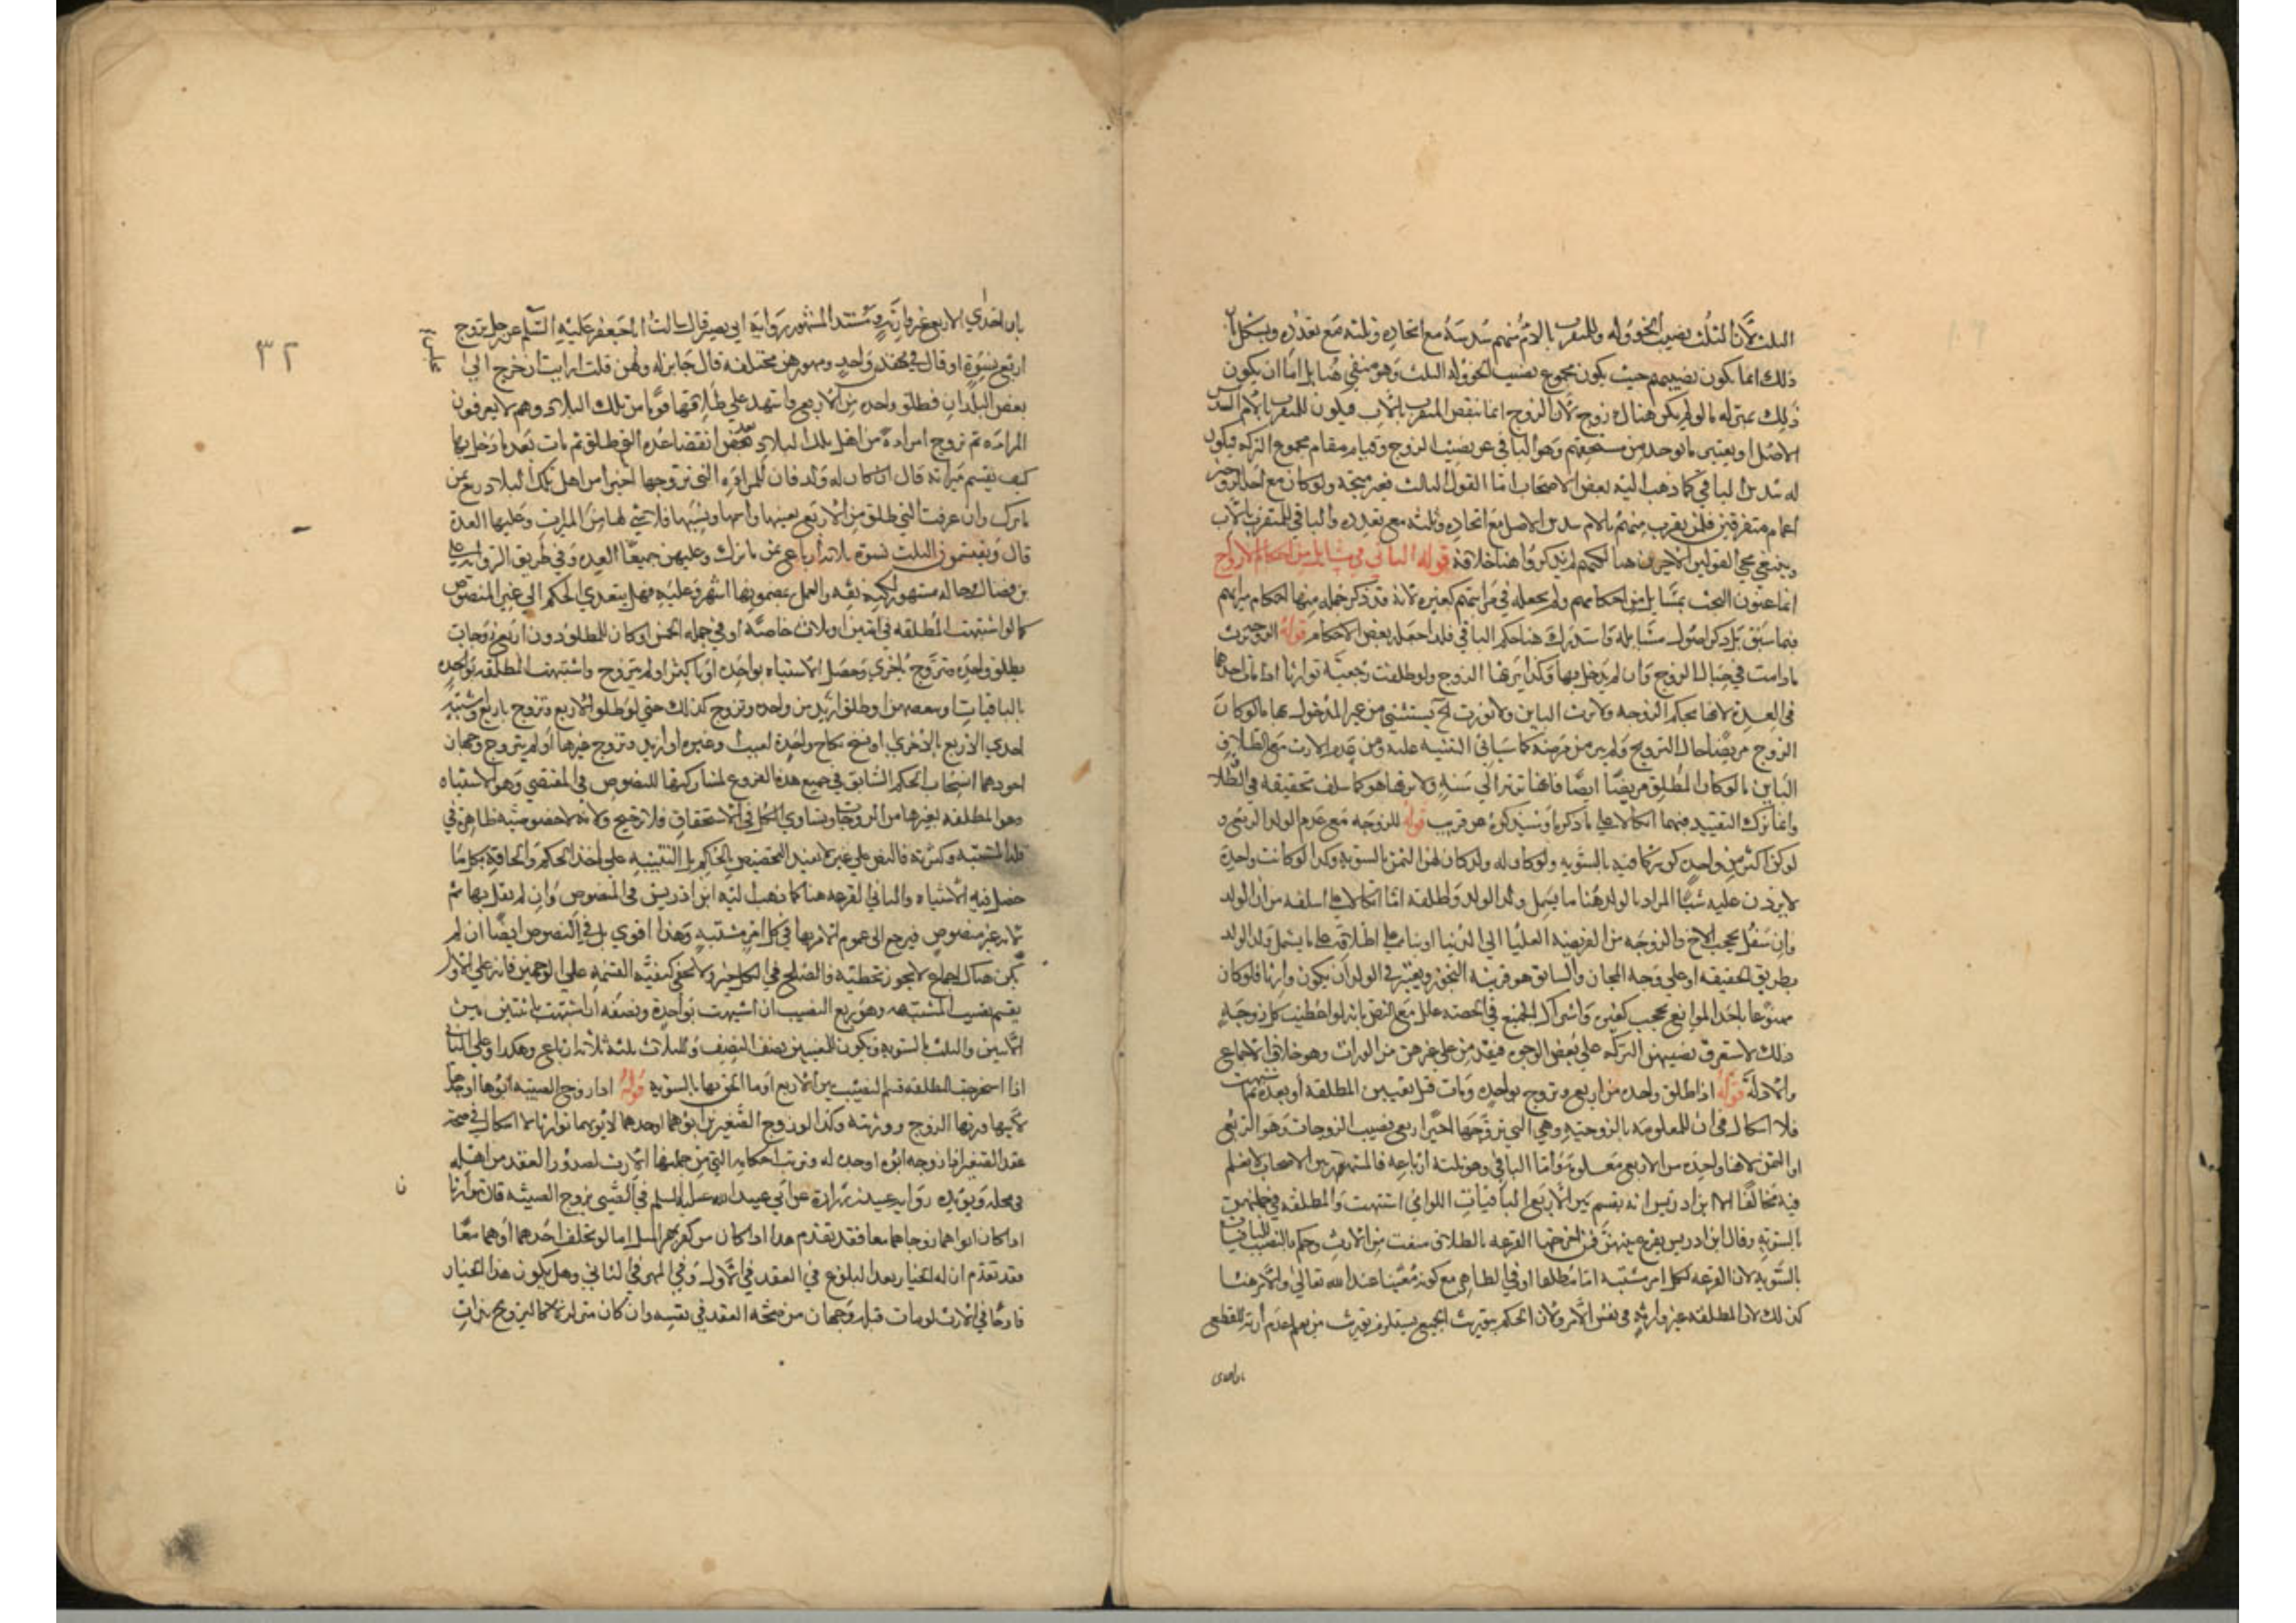 الثلث لان الثلث نصيب الخؤوله وللمتقرب بالام منهم سدسه مع اتحاده وثلثه مع تعدده ويشكل بان
ذلك انما يكون نصيبهم حيث يكون مجموع نصيب الخؤوله الثلث وهو منفي هنا بل اما ان يكون
ذلك بمنزله ما لو لم يكن هناك زوج لان الزوج انما ينقص المتقرب بالاب فيكون للمتقرب بالام السدس
الاصل او يعتبر ما يوجد من مستحقهم وهو الباقي عن نصيب الزوج وقيامه مقام مجموع التركه فيكون
له سدس الباقي كما ذهب اليه بعض الاصحاب اما القول الثالث فغير متجه ولو كان مع احد الزوجين
اعمام متفرقين فلمن يقرب منهم بالام سدس الاصل مع اتحاده وثلثه مع تعدده والباقي للمتقرب بالاب
وينبغي مجي القولين الاخيرين هنا لكنهم لم يذكروا هنا خلافه قوله الثاني في مسايل من احكام الازواج
انما عنون البحث بمسايل من احكامهم ولم يجعله في مراتبهم كغيره لانه قد ذكر جمله منها احكام ميراثهم
فيما سبق بل ذكر اصول مسايله واستدرك هنا حكم الباقي فلذا جعله بعض الاحكام قوله الزوجه ترث
ما دامت في حبال الزوج وان لم يدخل بها وكذا يرثها الزوج ولو طلقت رجعيه توارثا اذا مات احدهما
في العده لانها بحكم الزوجه ولا ترث الباين ولا تورث الخ يستثنى من غير المدخول بها ما لو كان
الزوج مريضا حال التزويج ولم يبر من مرضه كما سياتي التنبيه عليه ومن عدم الارث مع الطلاق
الباين ما لو كان المطلق مريضا ايضا فانها ترثه الى سنه ولا يرثها هو كما سلف تحقيقه في الطلاق
وانما ترك التقييد فيهما اتكالا على ما ذكر او سيذكره عن قريب قوله للزوجه مع عدم الولد الربع و
لو كن اكثر من واحده كن شركا فيه بالسويه ولو كان له ولد كان لهن الثمن بالسويه وكذا لو كانت واحده
لا يزدن عليه شيئا المراد بالولد هنا ما يشمل ولد الولد واطلقه اما اتكالا على ما اسلفه من ان الولد
وان سفل يحجب الاخ والزوجه من الفريضه العليا الى الدنيا او بناء على اطلاقه على ما يشمل ولد الولد
بطريق الحقيقه او على وجه المجاز والسابق هو قرينه التجوز ويعتبر في الولد ان يكون وارثا فلو كان
ممنوعا باحد الموانع لم يحجب كغيره واشتراك الجميع في الحصه علل مع النص بانه لو اعطيت كل زوجه
ذلك لاستغرق نصيبهن التركه على بعض الوجوه فيقدمن على غيرهن من الوراث وهو خلاف الاجماع
والادله قوله اذا طلق واحده من اربع وتزوج بواحده ومات قبل تعيين المطلقه او بعده ثم اشتبهت
فلا اشكال في ان للمعلومه بالزوجيه وهي التي تزوجها اخيرا ربع نصيب الزوجات وهو الربع
او الثمن لانها واحده من الاربع معلومه واما الباقي وهو ثلثه ارباعه فالمشهور بين الاصحاب لا نعلم
فيه مخالفا الا ابن ادريس انه يقسم بين الاربع الباقيات اللواتي اشتبهت والمطلقه في جملتهن
بالسويه وقال ابن ادريس يقرع بينهن فمن اخرجتها القرعه بالطلاق منعت من الارث وحكم بالنصيب للباقيات
بالسويه لان القرعه لكل امر مشتبه اما مطلقا او في الظاهر مع كونه معينا عند الله تعالى والامر هنا
كذلك لان المطلقه غير وارثه في نفس الامر ولان الحكم بتوريث الجميع يستلزم توريث من يعلم عدم ارثه للقطع
بان احدى
٣٢
بان احدى الاربع غير وارثه ومستند المشهور روايه ابي بصير قال سالت ابا جعفر عليه السلم عن رجل تزوج
اربع نسوه او قال في عقد واحد ومهورهن مختلفه قال جايز له ولهن قلت ارايت ان خرج الى
بعض البلدان فطلق واحده من الاربع واشهد على طلاقها قوما من تلك البلاد وهم لا يعرفون
المراه ثم تزوج امراه من اهل تلك البلاد بعد انقضا عده التي طلق ثم مات بعد ما دخل بها
كيف يقسم ميراثه قال ان كان له ولد فان للمراه التي تزوجها اخيرا من اهل تلك البلاد ربع ثمن
ما ترك وان عرفت التي طلق من الاربع بعينها واسمها ونسبها فلا شي لها من الميراث وعليها العده
قال ويقتسمن الثلث نسوه ثلاثه ارباع ثمن ما ترك وعليهن جميعا العده وفي طريق الروايه علي
بن فضال وحاله مشهور لكنه ثقه والعمل بمضمونها اشهر وعليه فهل يتعدى الحكم الى غير المنصوص
كما لو اشتبهت المطلقه في اثنتين او ثلاث خاصه او في جمله الخمس او كان للمطلق دون اربع زوجات
فطلق واحده وتزوج باخرى وحصل الاشتباه بواحده او باكثر او لم يتزوج واشتبهت المطلقه بواحده
بالباقيات او ببعضهن او طلق ازيد من واحده وتزوج كذلك حتى لو طلق الاربع وتزوج باربع واشتبه
احدى الاربع بالاخرى او فسخ نكاح واحده لعيب وغيره او ازيد وتزوج غيرها او لم يتزوج وجهان
اجودهما انسحاب الحكم السابق في جميع هذه الفروع لمشاركتها للمنصوص في المقتضي وهو الاشتباه
وهو المطلقه بغيرها من الزوجات وتساوي الكل في الاستحقاق فلا ترجيح ولانه لا خصوصيه ظاهره في
قله المشتبه وكثرته فالنص على عين لا يفيد التخصيص بالحكم بل التنبيه على ماخذ الحكم والحاقه بكل ما
حصل فيه الاشتباه والثاني القرعه هنا كما ذهب اليه ابن ادريس في المنصوص وان لم يقل بها ثم
لانه غير منصوص فيرجع الى عموم الامر بها في كل امر مشتبه وهذا اقوى بل في المنصوص ايضا ان لم
يكن هناك اجماع لا يجوز تخطيه والصلح في الكل خير ولا يخفى كيفيه القسمه على الوجهين فانه على الاول
يقسم نصيب المشتبهه وهو ربع النصيب ان اشتبهت بواحده ونصفه ان اشتبهت باثنتين بين
الاثنين والثلث بالسويه ويكون للمعينتين نصف النصيف وللثلاث ثلثه ثلاثه ارباع وهكذا وعلى الثاني
اذا استخرجت المطلقه قسم النصيب بين الاربع او ما الحق بها بالسويه قوله اذا زوج الصبيه ابوها او جدها
لابيها ورثها الزوج وورثته وكذا لو زوج الصغيرين ابوهما او جدهما لابيهما توارثا لا اشكال في صحه
عقد الصغير اذا زوجه ابوه او جده له وترتب احكامه التي من جملتها الارث لصدور العقد من اهله
في محله ويؤيده روايه عبيد بن زراره عن ابي عبد الله عليه السلم في الصبي يزوج الصبيه قال توارثا
اذا كان ابواهما زوجاهما معا فقد تقدم هذا اذا كان من كفو بمهر المثل اما لو تخلف احدهما او هما معا
فقد تقدم ان له الخيار بعد البلوغ في العقد في الاول وفي المهر في الثاني وهل يكون هذا الخيار
قادحا في الارث لو مات قبله وجهان من صحه العقد في نفسه وان كان متزلزلا كالتزويج بذات